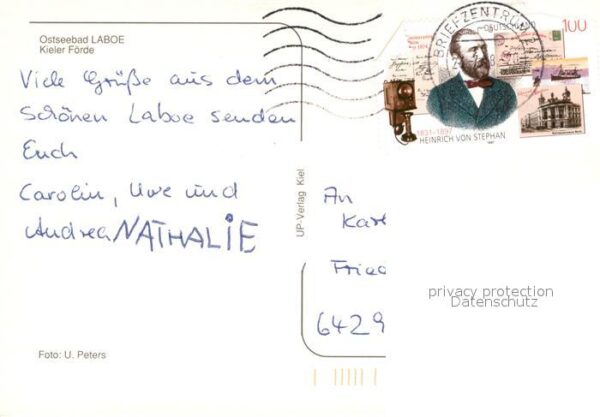 Ostseebad LABOE
Kieler Förde
Viele Grüße aus dem
schönen Laboe senden
Euch
Carolin, Uwe und
Andrea NATHALIE
Foto: U. Peters
UP-Verlag Kiel
BRIEFZENTRUM
100
1831-1897
HEINRICH VON STEPHAN
1997
An
Kar
Fried
6429
privacy protection
Datenschutz